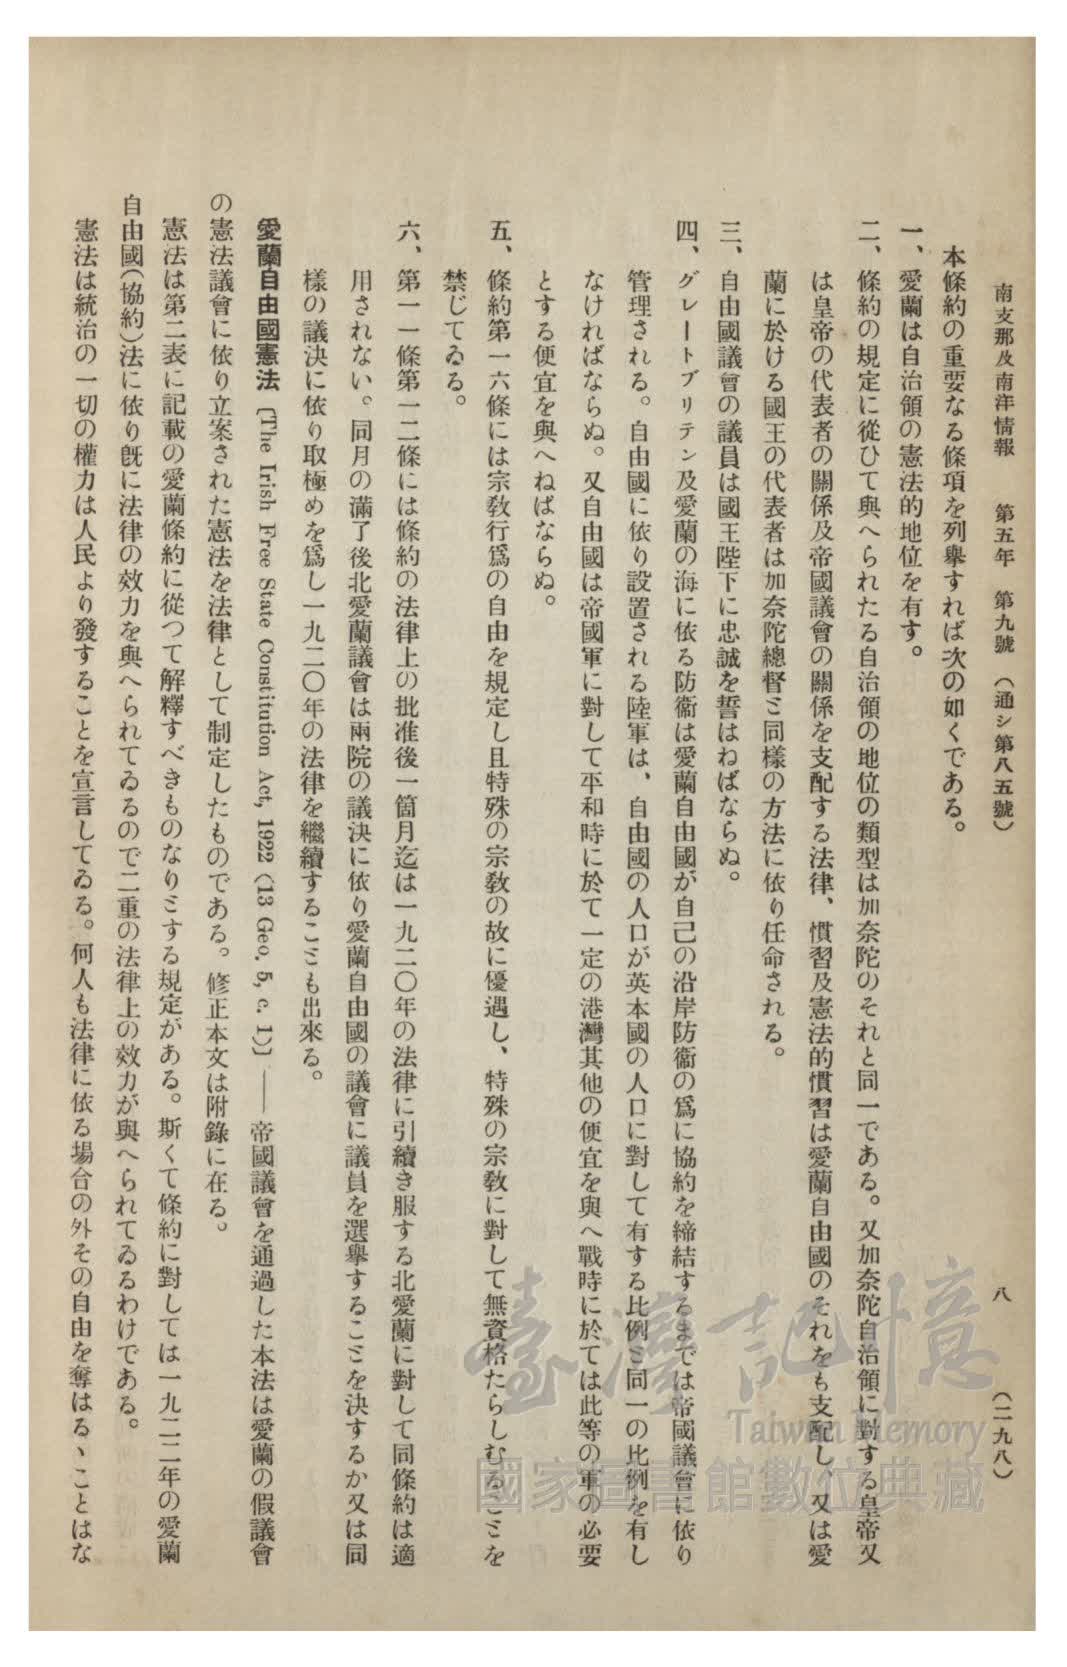 南支那及南洋情報　第五年　第九號　（通シ第八五號）　八　（二九八）
本條約の重要なる條項を列擧すれば次の如くである。
一、愛蘭は自治領の憲法的地位を有す。
二、條約の規定に從ひて與へられたる自治領の地位の類型は加奈陀のそれと同一である。又加奈陀自治領に對する皇帝又
は皇帝の代表者の關係及帝國議會の關係を支配する法律、慣習及憲法的慣習は愛蘭自由國のそれをも支配し、又は愛
蘭に於ける國王の代表者は加奈陀總督ミ同樣の方法に依り任命される。
三、自由國議會の議員は國王陛下に忠誠を誓はねばならぬ。
四、グレートブリテン及愛蘭の海に依る防衞は愛蘭自由國が自己の沿岸防衞の爲に協約を締結するまでは帝國議會に依り
管理される。自由國に依り設置される陸軍は、自由國の人口が英本國の人口に對して有する比例ミ同一の比例を有し
なければならぬ。又自由國は帝國軍に對して平和時に於て一定の港灣其他の便宜を與へ戰時に於ては此等の軍の必要
とする便宜を與へねばならぬ。
五、條約第一六條には宗敎行爲の自由を規定し且特殊の宗敎の故に優遇し、特殊の宗敎に對して無資格たらしむるこミを
禁じてゐる。
六、第一一條第一二條には條約の法律上の批准後一箇月迄は一九二〇年の法律に引續き服する北愛蘭に對して同條約は適
用されない。同月の滿了後北愛蘭議會は兩院の議決に依り愛蘭自由國の議會に議員を選擧するこミを決するか又は同
樣の議決に依り取極めを爲し一九二〇年の法律を繼續するこミも出來る。
愛蘭自由國憲法〔The Irish Free State Constitution Act, 1922 (13 Geo. 5, c. 1)〕――帝國議會を通過した本法は愛蘭の假議會
の憲法議會に依り立案された憲法を法律として制定したものである。修正本文は附錄に在る。
憲法は第二表に記載の愛蘭條約に從つて解釋すべきものなりミする規定がある。斯くて條約に對しては一九二二年の愛蘭
自由國（協約）法に依り旣に法律の效力を與へられてゐるので二重の法律上の效力が與へられてゐるわけである。
憲法は統治の一切の權力は人民より發することを宣言してゐる。何人も法律に依る場合の外その自由を奪はるゝことはな
臺灣記憶
Taiwan Memory
國家圖書館數位典藏